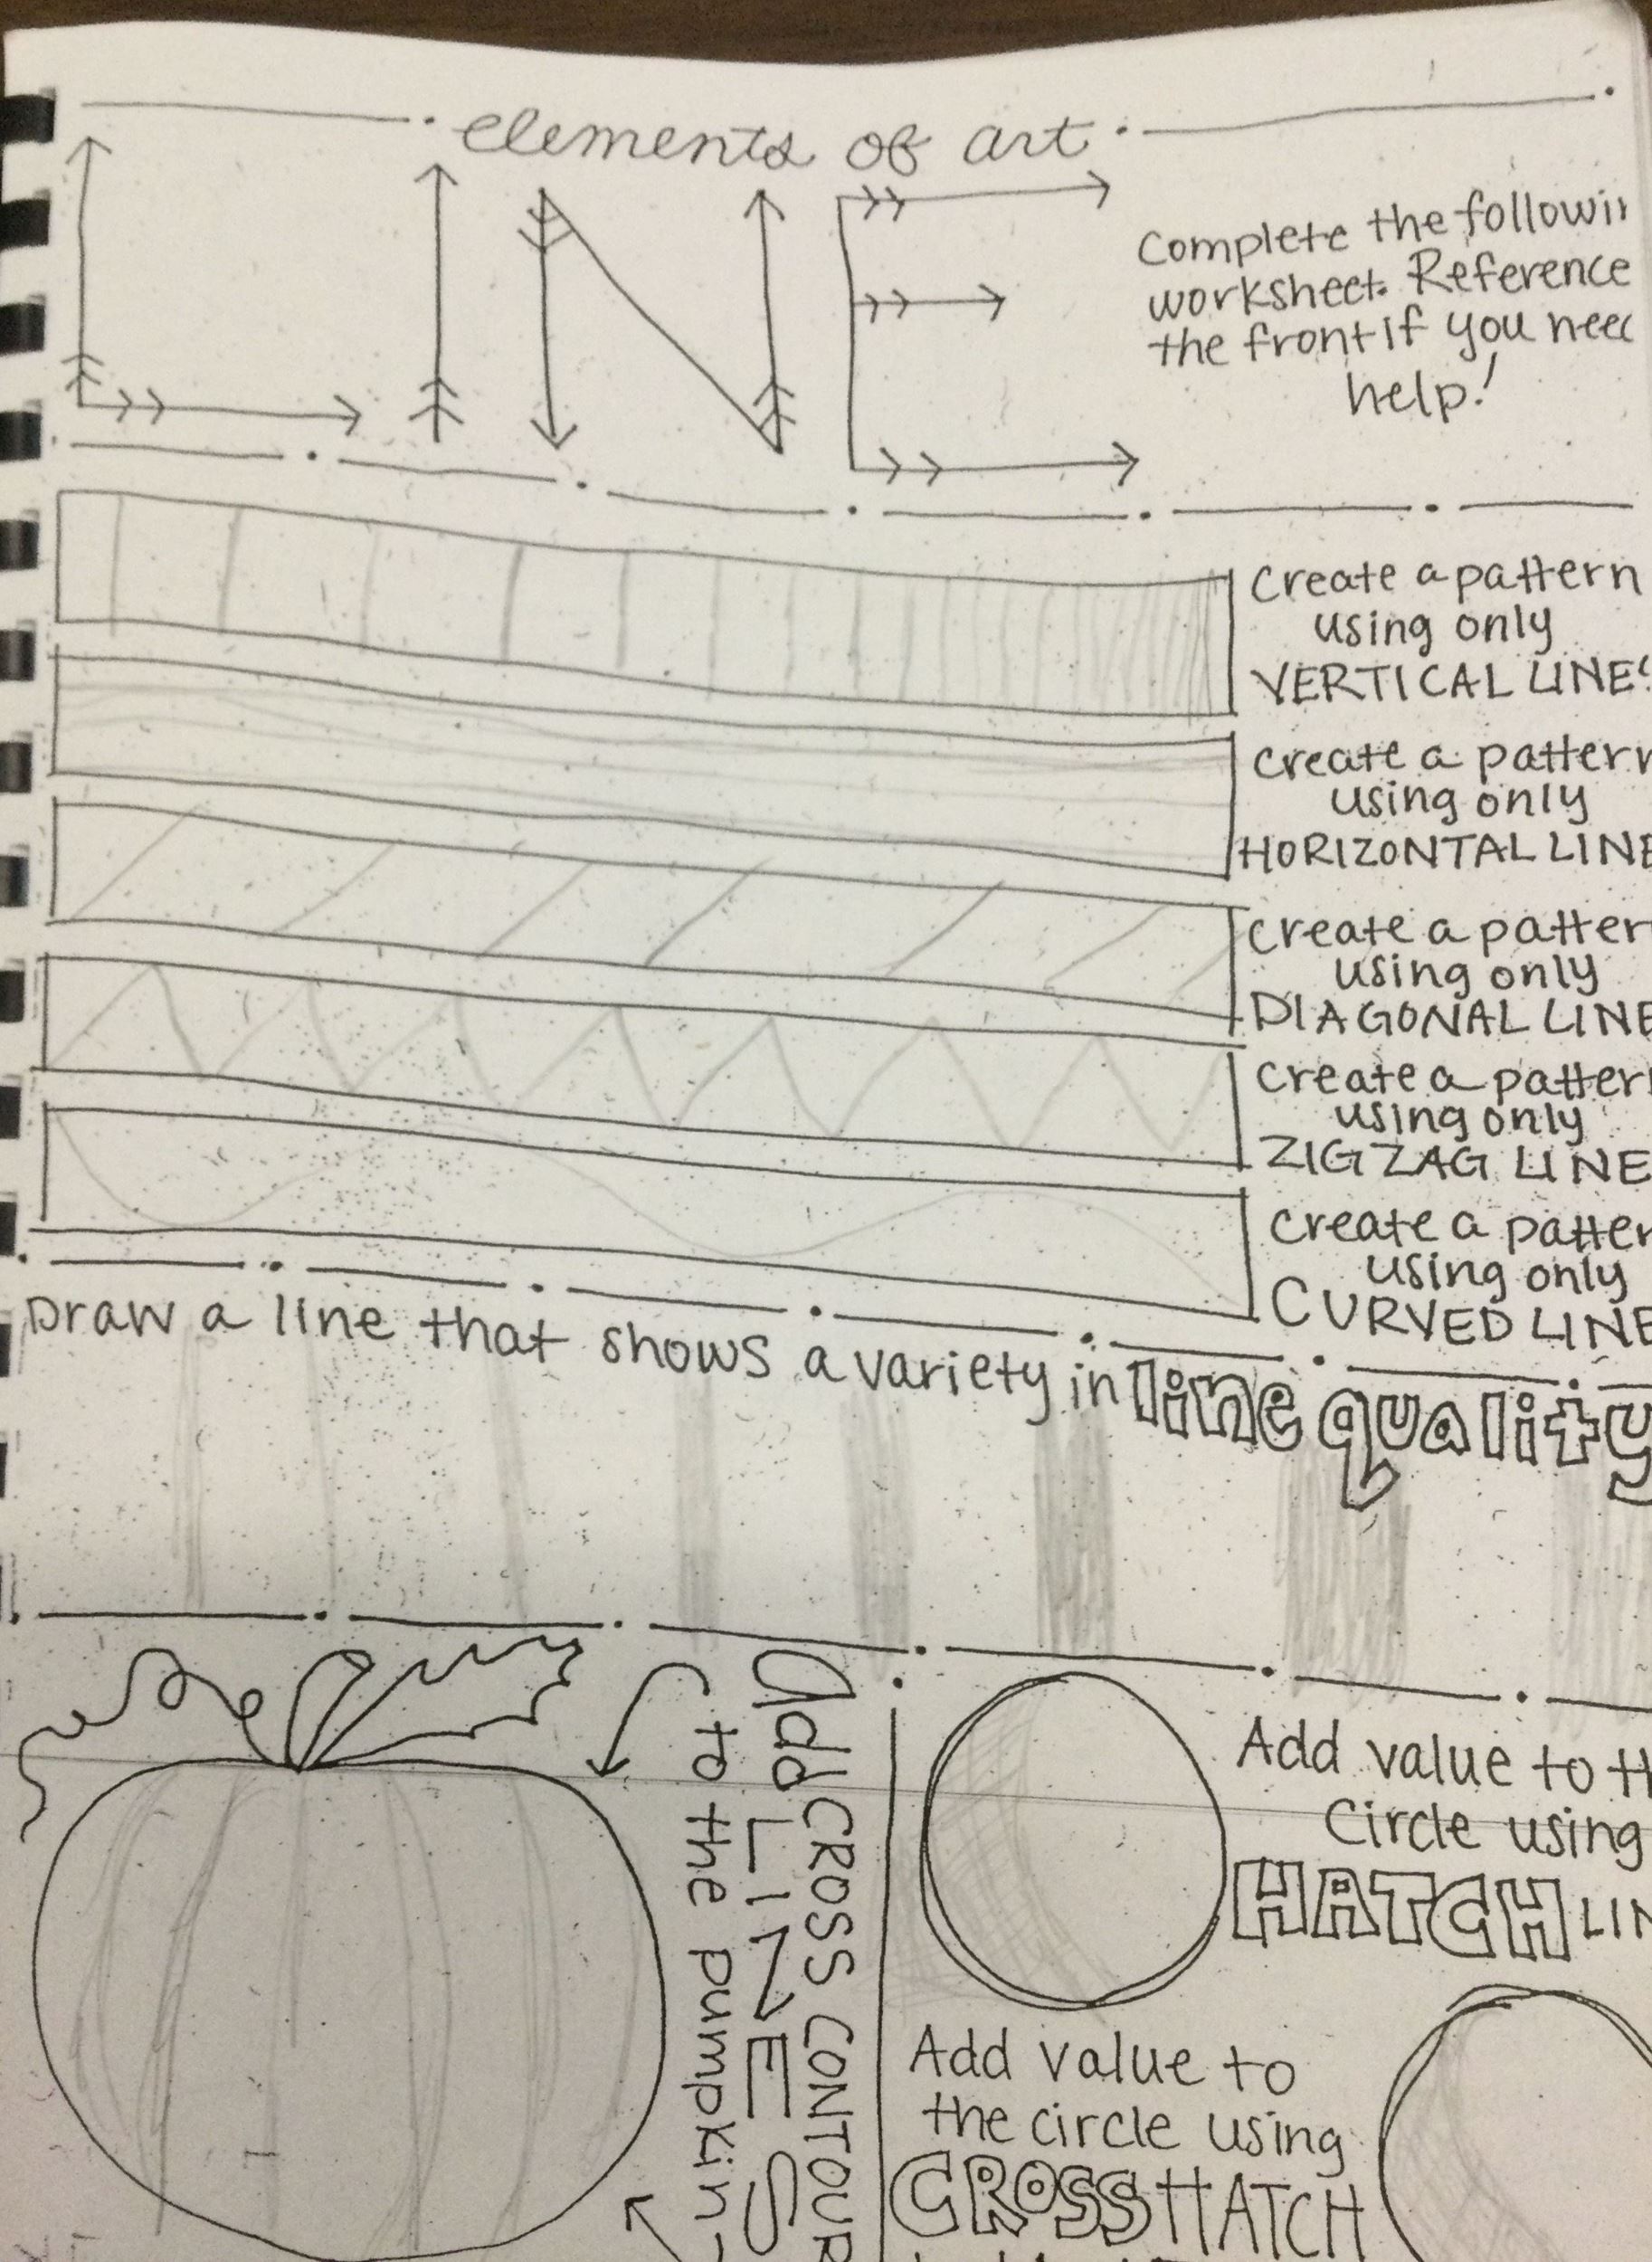 elements of art
LINE
Complete the followin
worksheet. Reference
the front if you need
help!
Create a pattern
using only
VERTICAL LINES
Create a pattern
using only
HORIZONTAL LINE
Create a patter
using only
DIAGONAL LINE
Create a patter
using only
ZIGZAG LINE
Create a patter
using only
CURVED LINE
Draw a line that shows a variety in line quality
Add CROSS CONTOUR
LINES
to the pumpkin
Add value to th
Circle using
HATCH LIN
Add value to
the circle using
CROSSHATCH